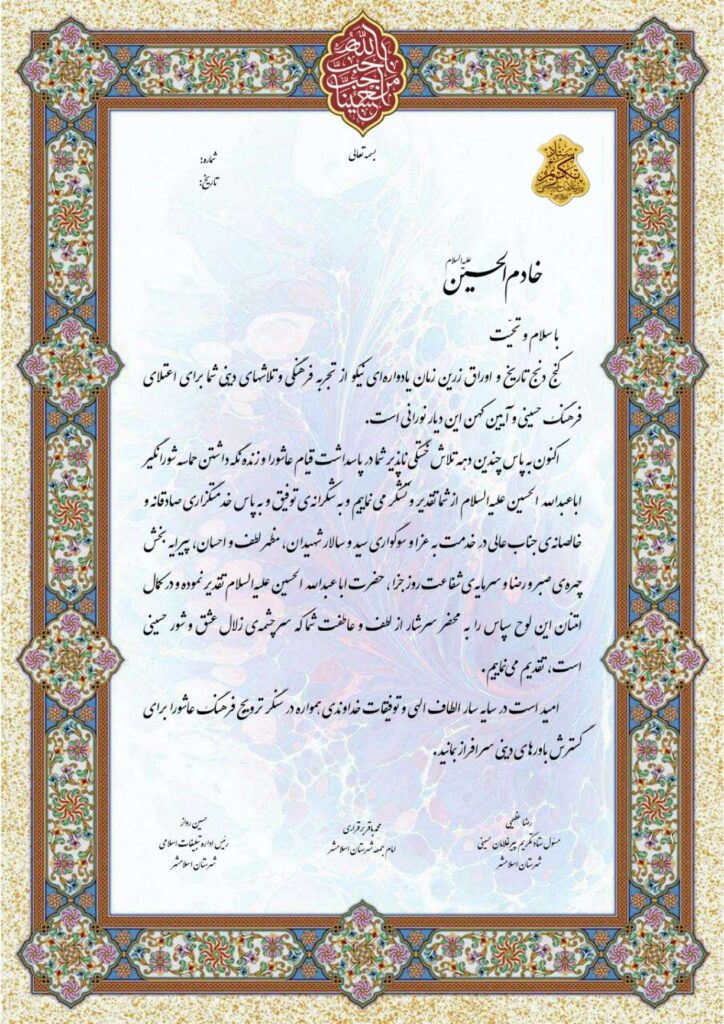 احب الله من احب حسینا
بسمه تعالی
شماره:
تاریخ:
ستاد تکریم
خادم الحسین علیه السلام
با سلام و تحیّت
گنج دنج تاریخ و اوراق زرین زمان یادواره‌ای نیکو از تجربه فرهنگی و تلاشهای دینی شما برای اعتلای
فرهنگ حسینی و آیین کهن این دیار نورانی است.
اکنون به پاس چندین دهه تلاش خستگی ناپذیر شما در پاسداشت قیام عاشورا و زنده نگه داشتن حماسه شورانگیز
اباعبدالله الحسین علیه السلام از شما تقدیر و تشکر می نماییم و به شکرانه‌ی توفیق و به پاس خدمتگزاری صادقانه و
خالصانه‌ی جناب عالی در خدمت به عزا و سوگواری سید و سالار شهیدان، مظهر لطف و احسان، پیرایه بخش
چهره‌ی صبر و رضا و سرمایه‌ی شفاعت روز جزا، حضرت اباعبدالله الحسین علیه السلام تقدیر نموده و در کمال
امتنان این لوح سپاس را به محضر سرشار از لطف و عاطفت شما که سرچشمه‌ی زلال عشق و شور حسینی
است، تقدیم می نماییم.
امید است در سایه سار الطاف الهی و توفیقات خداوندی همواره در سنگر ترویج فرهنگ عاشورا برای
گسترش باورهای دینی سرافراز بمانید.
رضا عظیمی
مسئول ستاد تکریم پیرغلامان حسینی
شهرستان اسلامشهر
محمدباقر برقراری
امام جمعه شهرستان اسلامشهر
حسین رواز
رئیس اداره تبلیغات اسلامی
شهرستان اسلامشهر